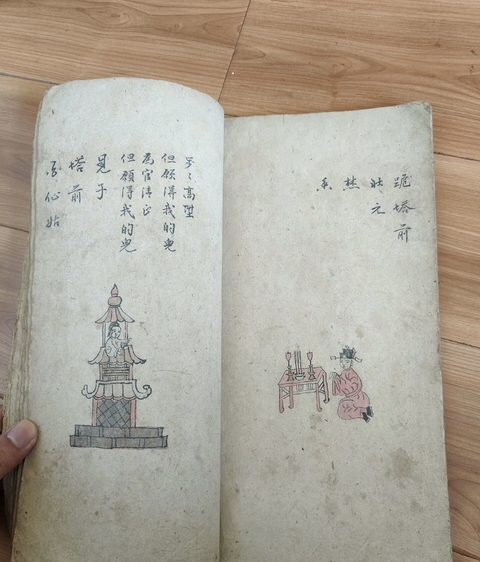 跪塔前
壮元
焚
香
步々高陞
但願得我的兒
為官清正
但願得我的兒
見子
塔前
仙姑